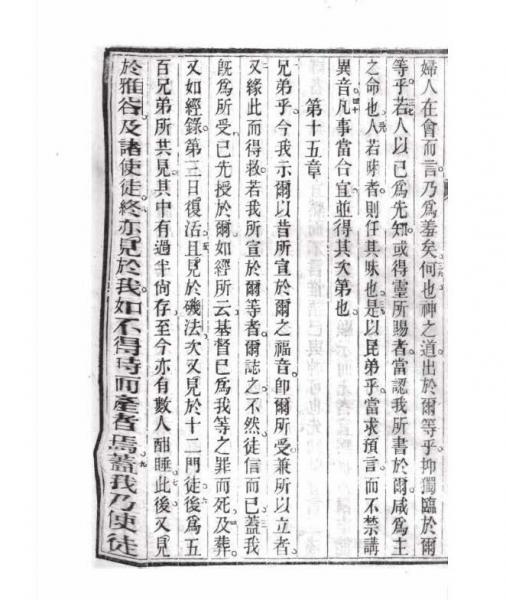 婦人在會而言乃爲羞矣何也神之道出於爾等乎抑獨臨於爾
等乎若人以己爲先知或得靈所賜者當認我所書於爾咸爲主
之命也人若昧者則任其昧也是以昆弟乎當求預言而不禁講
異音凡事當合宜並得其次第也
第十五章
兄弟乎今我示爾以昔所宣於爾之福音卽爾所受兼所以立者
又緣此而得救若我所宣於爾等者爾誌之不然徒信而已蓋我
旣爲所受已先授於爾如經所云基督已爲我等之罪而死及葬
又如經錄第三日復活且見於磯法次又見於十二門徒後爲五
百兄弟所共見其中有過半尙存至今亦有數人酣睡此後又見
於雅各及諸使徒終亦見於我如不得時而產者焉蓋我乃使徒